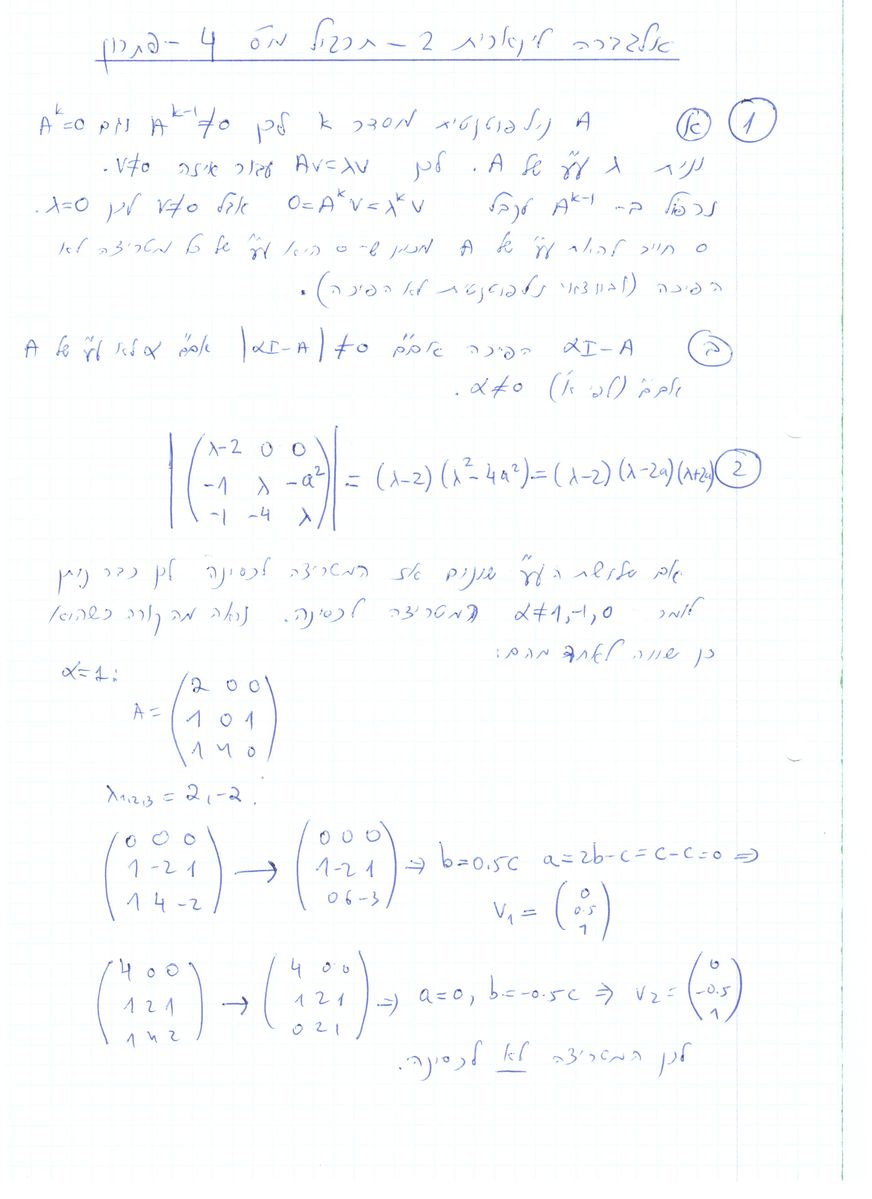 אלגברה לינארית 2 - תרגיל מס 4 - פתרון
1 א) A נילפוטנטית מסדר k לכן A^{k-1}≠0 וגם A^k=0
נניח λ ע"ע של A. לכן Av=λv עבור איזה v≠0.
נכפול ב- A^{k-1} לקבל 0=A^k v=λ^k v אבל v≠0 לכן λ=0.
0 חייב להיות ע"ע של A מכיוון ש-0 היא ע"ע של כל מטריצה לא
הפיכה (ובוודאי נילפוטנטית לא הפיכה).
ב) αI-A הפיכה אםם |αI-A|≠0 אםם α לא ע"ע של A
אםם (לפי א') α≠0.
2 |(λ-2 0 0
-1 λ -a²
-1 -4 λ)| = (λ-2)(λ²-4a²)=(λ-2)(λ-2a)(λ+2a)
אם שלושת הע"ע שונים אז המטריצה לכסינה לכן כבר ניתן
לומר α≠1,-1,0 המטריצה לכסינה. נראה מה קורה כשהוא
כן שווה לאחד מהם:
α=1:
A= (2 0 0
1 0 1
1 4 0)
λ1,2,3 = 2,-2:
(0 0 0
1 -2 1
1 4 -2) → (0 0 0
1 -2 1
0 6 -3) ⇒ b=0.5c a=2b-c=c-c=0 ⇒
V1 = (0
0.5
1)
(4 0 0
1 2 1
1 4 2) → (4 0 0
1 2 1
0 2 1) ⇒ a=0, b=-0.5c ⇒ V2 = (0
-0.5
1)
לכן המטריצה לא לכסינה.